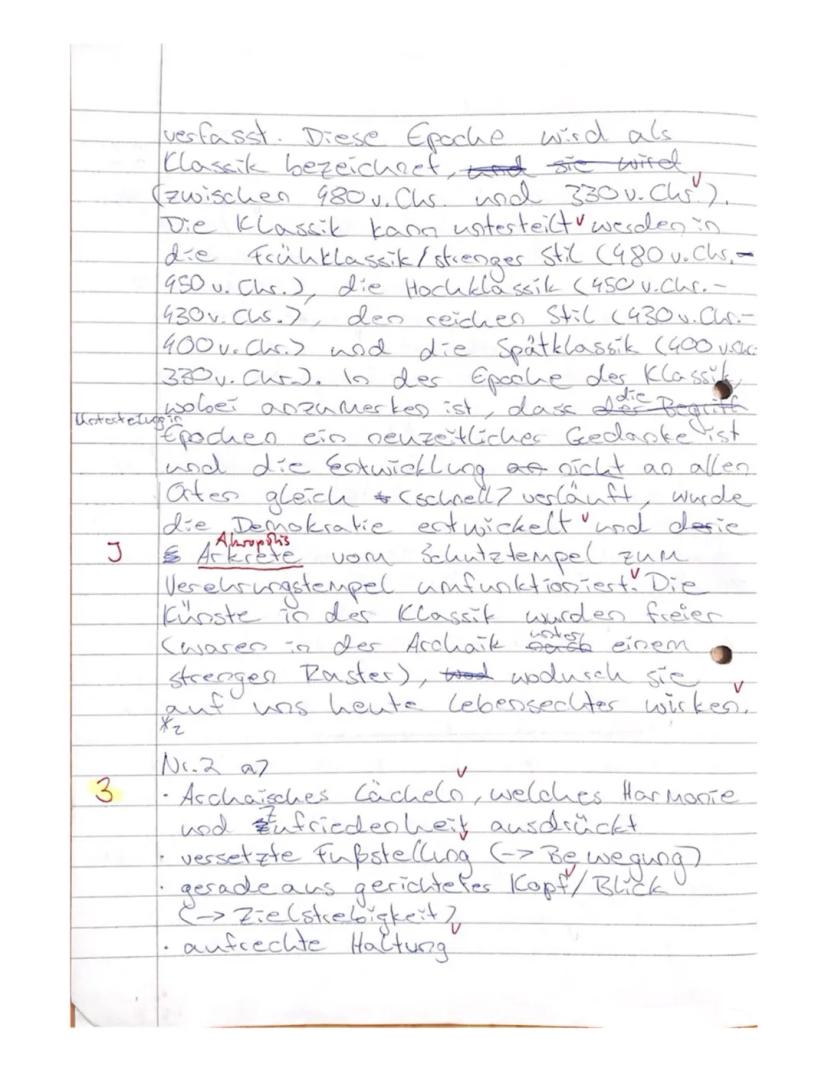 verfasst. Diese Epoche wird als
Klassik bezeichnet, und sie wird
(zwischen 480 v. Chr. und 330 v. Chr).
Die Klassik kann unterteilt werden in
die Frühklassik/strenger Stil (480 v. Chr. -
450 v. Chr.), die Hochklassik (450 v. Chr. -
430 v. Chr.), den reichen Stil (430 v. Chr. -
400 v. Chr.) und die Spätklassik (400 v. Chr.
330 v. Chr.). In der Epoche der Klassik,
wobei anzumerken ist, dass der Begriff die
Unterteilung in
Epochen ein neuzeitlicher Gedanke ist
und die Entwicklung an nicht an allen
Orten gleich (schnell) verläuft, wurde
die Demokratie entwickelt und die
Akropolis
J Arkrete vom Schutztempel zum
Verehrungstempel umfunktioniert. Die
Künste in der Klassik wurden freier
(waren in der Archaik nach unter einem
strengen Raster), und wodurch sie
auf uns heute lebensechter wirken.
*2
Nr. 2 a)
3 · Archaisches Lächeln, welches Harmonie
und Zufriedenheit ausdrückt
· versetzte Fußstellung (-> Bewegung)
· geradeaus gerichteter Kopf/Blick
(-> Zielstrebigkeit)
· aufrechte Haltung